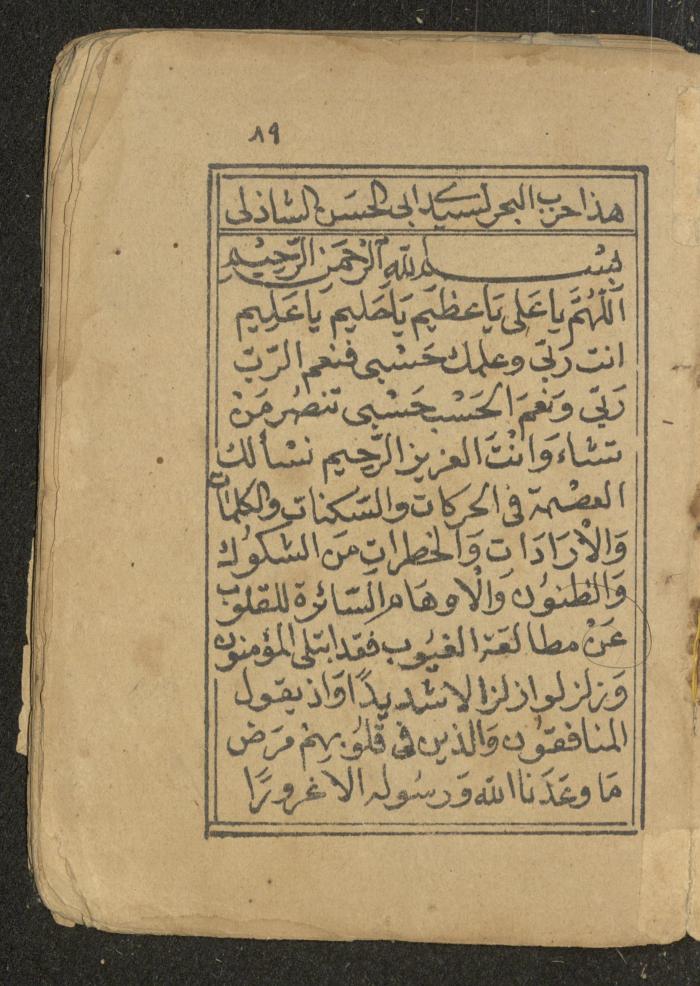 ٨٩
هذا حزب البحر لسيد ابى الحسن الشاذلى
بسم الله الرحمن الرحيم
اَللّٰهُمَّ يا عَلى يَا عظيم يَا حَليم يا عَليم
انت رَبّى وعلمك حَسْبى فنعم الرّبّ
رَبّى وَنعْمَ الحَسْب حَسْبى تنصُر مَنْ
تشاء وَانْتَ العزيز الرّحيم نسْألك
العصْمة فى الحركات والسّكنات والكلمات
وَالاْرَادَات وَالخطرات مَن الشكوُك
وَالظنوُن وَالْاوهَام السّائرة للقلوُب
عَنْ مطالعَة الغيُوب فقد ابتلى المؤمنون
وَزلزلوا زلزالا شديدًا وَاذ يقول
المنافقوُن وَالذين فى قلُوبهِمْ مَرَض
مَا وعَدَنا الله وَرسُوله الا غرورًا